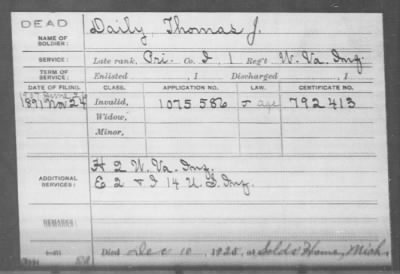 DEAD
NAME OF SOLDIER: Daily, Thomas J.
SERVICE: Late rank, Pri. Co. I, 1 Reg't W. Va. Inf.
TERM OF SERVICE: Enlisted , 1 Discharged , 1
DATE OF FILING. CLASS. APPLICATION NO. LAW. CERTIFICATE NO.
1891 Nov 24 Invalid, 1075586 age 792413
Widow,
Minor,
ADDITIONAL SERVICES: H 2 W. Va. Inf.
E 2 & I 14 U.S. Inf.
REMARKS:
Died Dec 10, 1925, at Solds Home, Mich.